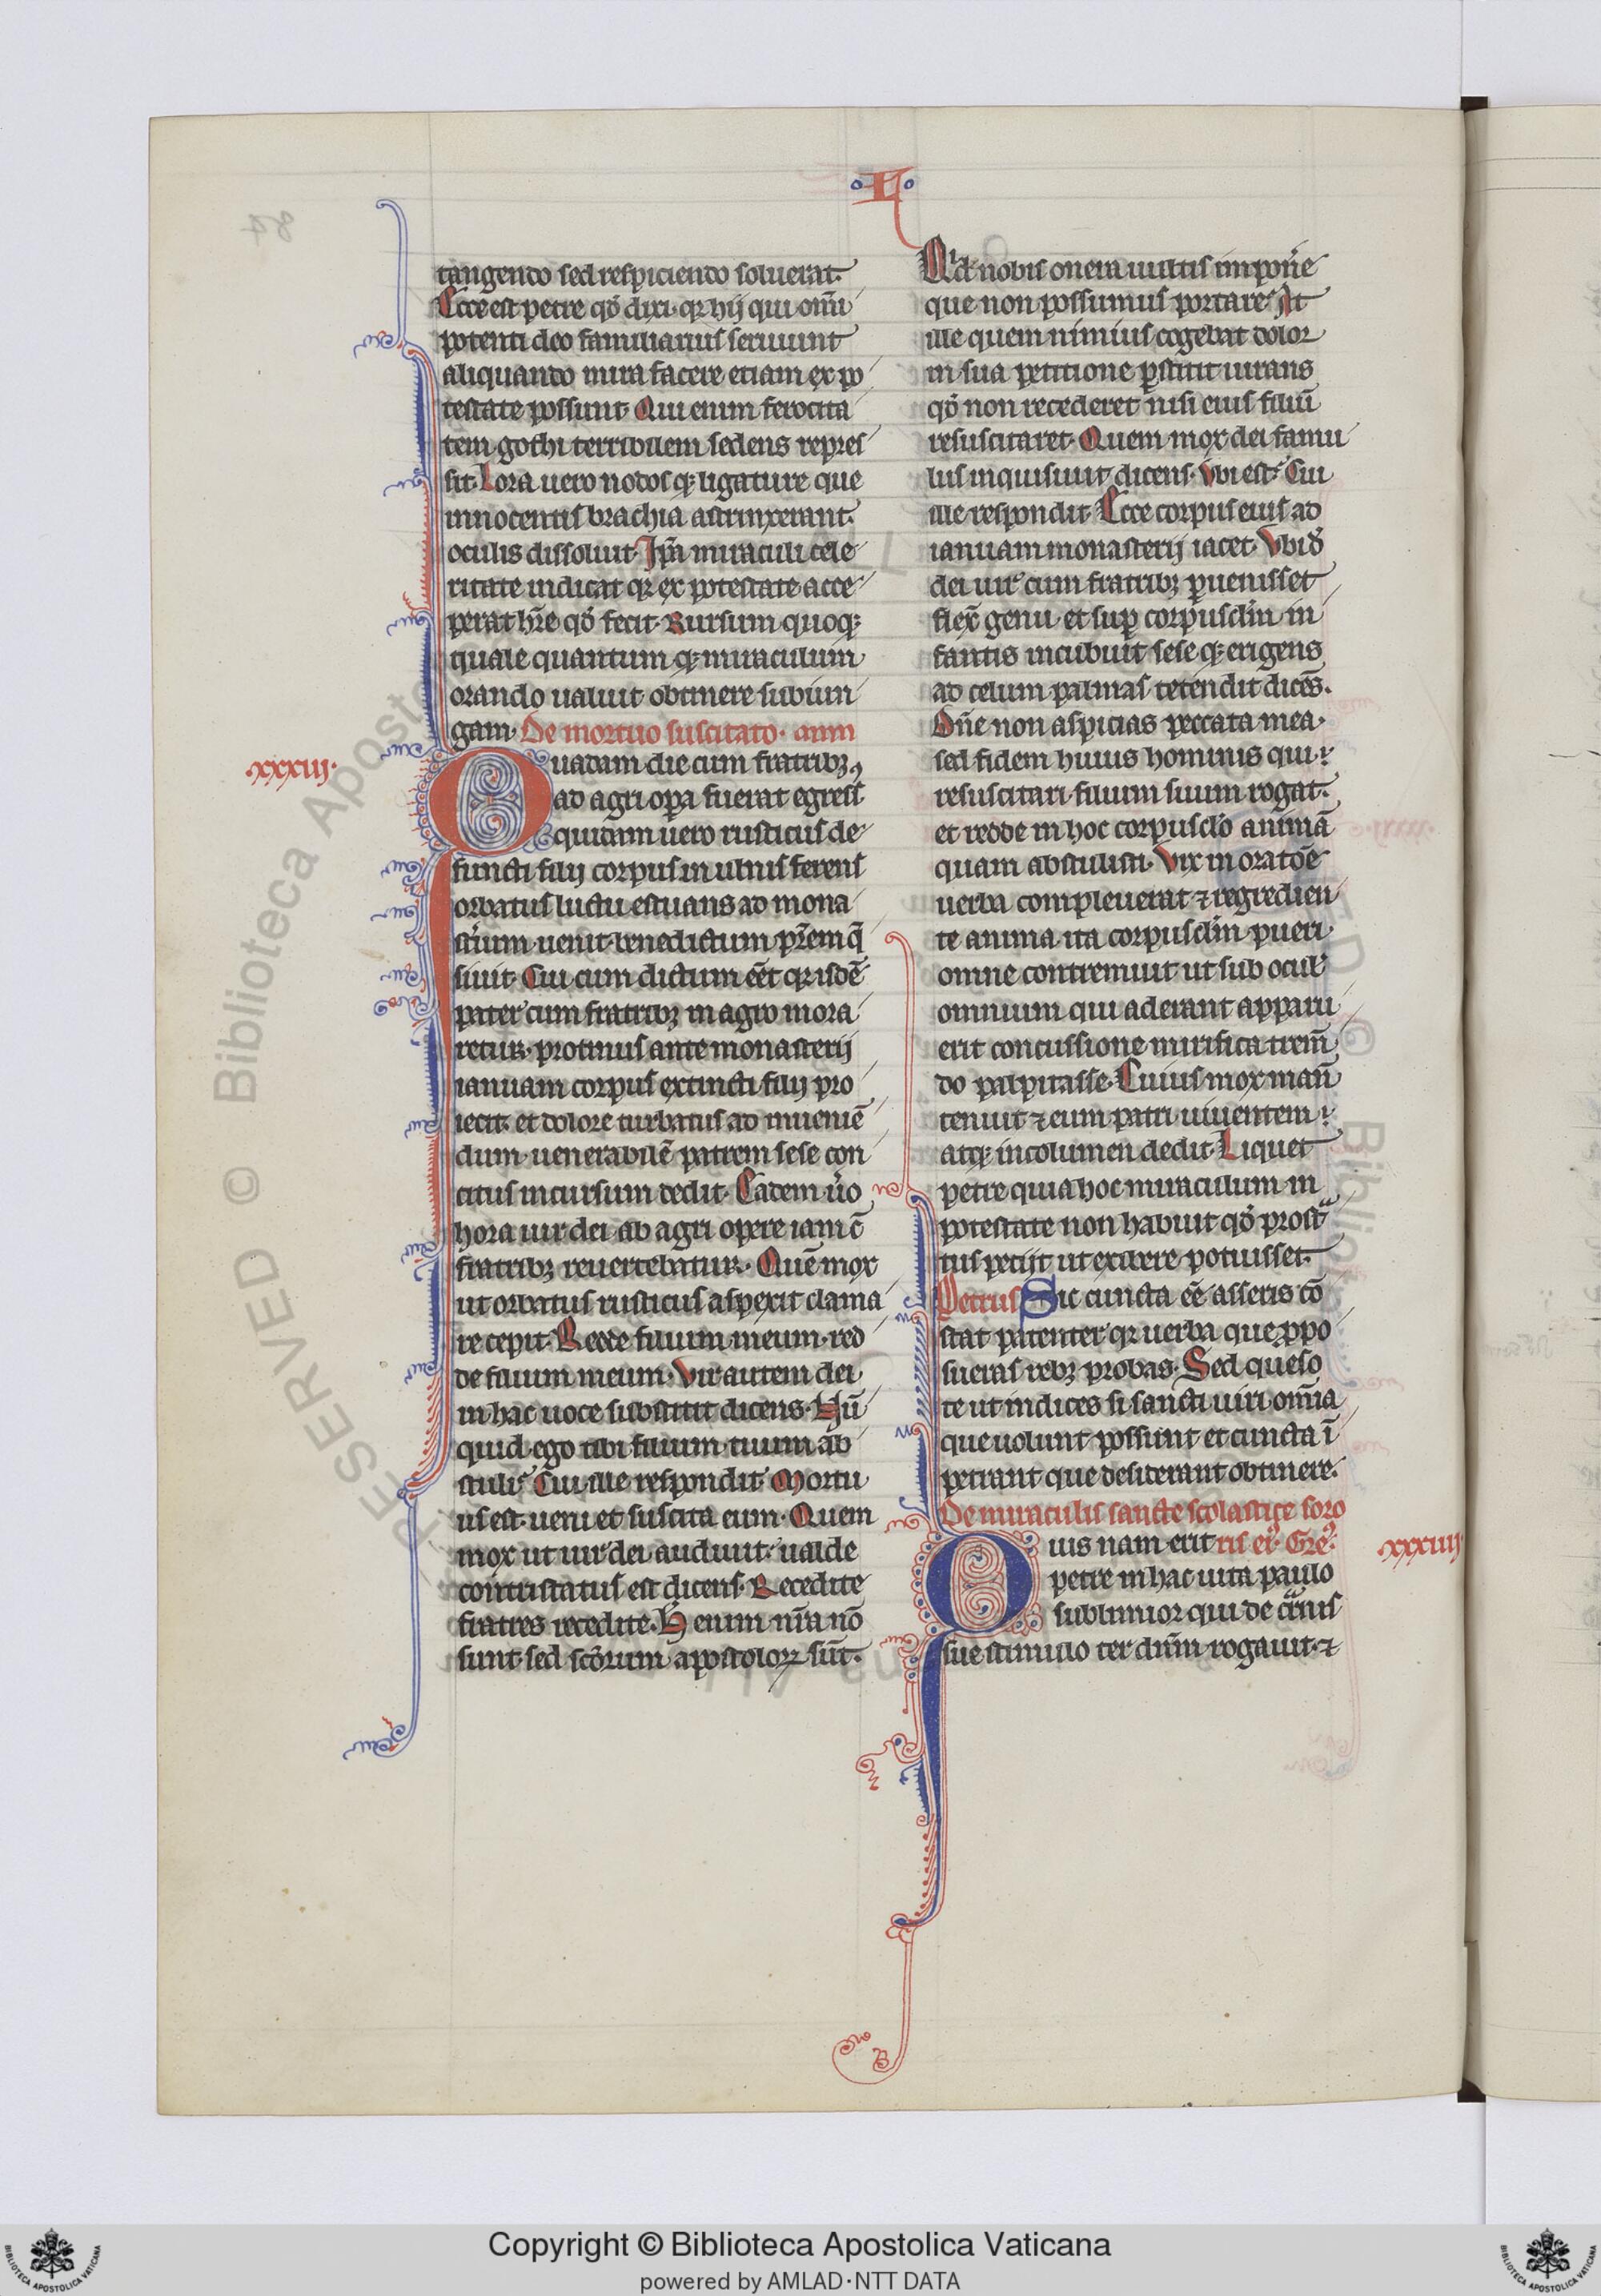 L
tangendo sed respiciendo soluerat.
Ecce est petre qđ dixi. qꝛ hij qui om̅i
potenti deo familiarius seruiunt
aliquando mira facere etiam ex po
testate possunt. Qui enim ferocita
tem gothi terribilem sedens repres
sit. Lora uero nodos qꝫ ligature que
innocentis brachia astrinxerant.
oculis dissoluit. Ip̅a miraculi cele
ritate indicat qꝛ ex potestate acce
perat hr̅e qđ fecit. Rursum quoqꝫ
quale quantum qꝫ miraculum
orando ualuit obtinere subiun
gam. De mortuo suscitato. cum
.xxxiij.
Quadam die cum fratribꝫ
ad agri opa fuerat egress
quidam uero rusticus de
functi filij corpus in ulnis ferens
orbatus luctu estuans ad mona
st'ium uenit. benedictum pr̅em q̅
siuit. Cui cum dictum eet̅ qꝛ isdē
pater cum fratribꝫ in agro mora
retur. protinus ante monasterij
ianuam corpus extincti filij pro
iecit. et dolore turbatus ad inueniē
dum uenerabilē patrem sese con
citus in cursum dedit. Eadem u̓o
hora uir dei ab agri opere iam c̄
fratribꝫ reuertebatur. Quē mox
ut orbatus rusticus aspexit clama
re cepit. Redde filium meum. red
de filium meum. Vir autem dei
in hac uoce substitit dicens. Nū
quid ego tibi filium tuum ab
stuli? Cui ille respondit. Mortu
us est. ueni et suscita eum. Quem
mox ut uir dei audiuit. ualde
contristatus est dicens. Recedite
fratres recedite. H̓ enim nr̅a nō
sunt sed scōrum apostoloꝝ sūt.
Qͥd nobis onera uultis impon̓e
que non possumus portare? At
ille quem nimius cogebat dolor
in sua petitione ꝑstitit iurans
qđ non recederet nisi eius filiū
resuscitaret. Quem mox dei famu
lus inquisiuit dicens. Vbi est? Cui
ille respondit. Ecce corpus eius ad
ianuam monasterij iacet. Vbi đ
dei uir cum fratribꝫ ꝑuenisset
flex̅ genu. et suꝑ corpusclm̅ in
fantis incubuit sese qꝫ erigens
ad celum palmas tetendit dicēs.
Dn̅e non aspicias peccata mea.
sed fidem huius hominis qui
resuscitari filium suum rogat.
et redde in hoc corpusclo̅ animā
quam abstulisti. Vix in oratōe
uerba compleuerat ⁊ regredien
te anima. ita corpusclm̅ pueri
omne contremuit ut sub ocul'
omnium qui aderant apparu
erit concussione mirifica trem̅
do palpitasse. Cuius mox manū
tenuit ⁊ eum patri uiuentem
atqꝫ incolumen dedit. Liquet
petre quia hoc miraculum in
potestate non habuit qđ prostͣ
tus petijt ut exibere potuisset.
Petrus Sic cuncta eē asseris cō
stat patenter qꝛ uerba que ꝓpo
sueras rebꝫ probas. Sed queso
te ut indices si sancti uiri om̅ia
que uolunt possunt et cuncta ī
petrant que desiderant obtinere.
De miraculis sancte scolastice soro
Quis nam erit ris eiꝰ. Gre.
.xxxiiij.
petre in hac uita paulo
sublimior qui de cͣrnis
sue stimulo ter dn̅m rogauit. ⁊
Copyright © Biblioteca Apostolica Vaticana
powered by AMLAD·NTT DATA